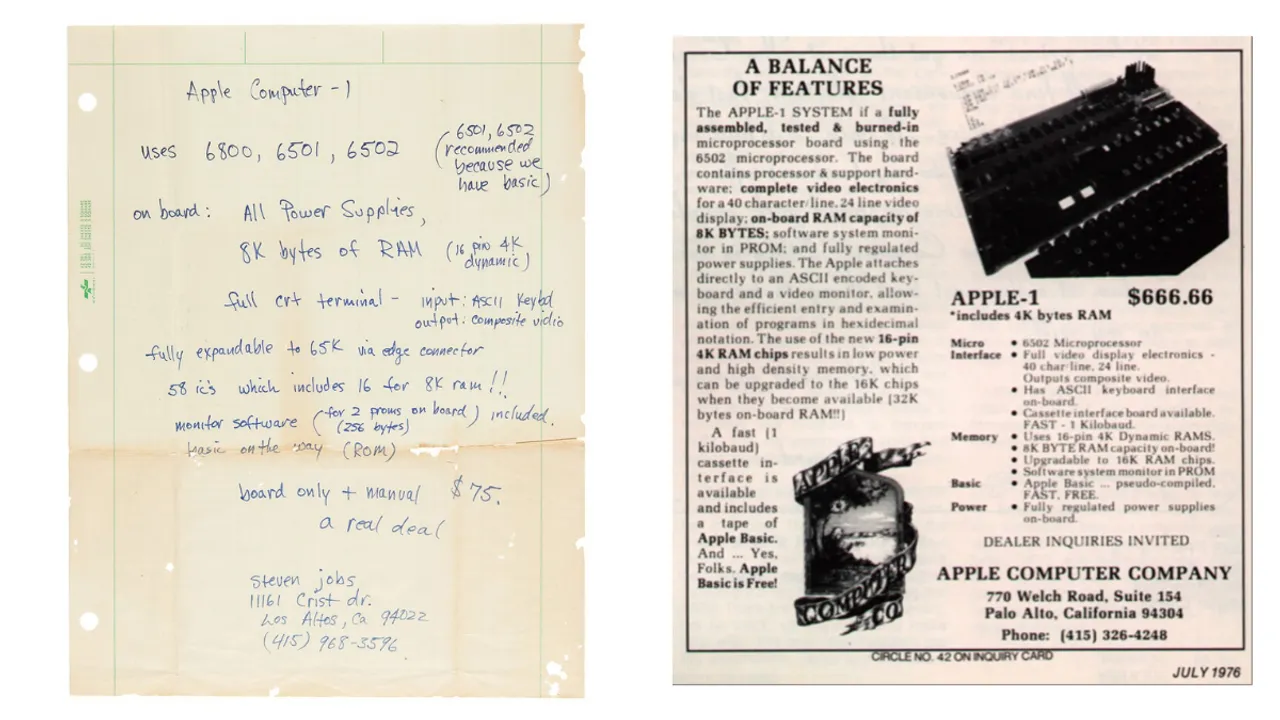 Apple Computer-1
uses 6800, 6501, 6502
(6501, 6502
recommended
because we
have basic)
on board: All Power Supplies,
8K bytes of RAM
(16 pin 4K
dynamic)
full crt terminal - input: ASCII Keybd
output: composite vidio
fully expandable to 65K via edge connector
58 ic's which includes 16 for 8K ram!!
monitor software (for 2 proms on board) included.
(256 bytes)
basic on the way (ROM)
board only + manual $75.
a real deal
steven jobs
11161 Crist dr.
Los Altos, Ca 94022
(415) 968-3596
A BALANCE
OF FEATURES
The APPLE-1 SYSTEM if a fully
assembled, tested & burned-in
microprocessor board using the
6502 microprocessor. The board
contains processor & support hard-
ware; complete video electronics
for a 40 character/line, 24 line video
display; on-board RAM capacity of
8K BYTES; software system moni-
tor in PROM; and fully regulated
power supplies. The Apple attaches
directly to an ASCII encoded key-
board and a video monitor, allow-
ing the efficient entry and examin-
ation of programs in hexidecimal
notation. The use of the new 16-pin
4K RAM chips results in low power
and high density memory, which
can be upgraded to the 16K chips
when they become available (32K
bytes on-board RAM!!)
A fast (1
kilobaud)
cassette in-
terface is
available
and includes
a tape of
Apple Basic.
And ... Yes,
Folks. Apple
Basic is Free!
APPLE
COMPUTER
CO
APPLE-1 $666.66
*includes 4K bytes RAM
Micro • 6502 Microprocessor
Interface • Full video display electronics -
40 char/line, 24 line.
Outputs composite video.
• Has ASCII keyboard interface
on-board.
• Cassette interface board available.
FAST - 1 Kilobaud.
Memory • Uses 16-pin 4K Dynamic RAMS.
• 8K BYTE RAM capacity on-board!
• Upgradable to 16K RAM chips.
• Software system monitor in PROM
Basic • Apple Basic ... pseudo-compiled.
FAST, FREE.
Power • Fully regulated power supplies
on-board.
DEALER INQUIRIES INVITED
APPLE COMPUTER COMPANY
770 Welch Road, Suite 154
Palo Alto, California 94304
Phone: (415) 326-4248
CIRCLE NO. 42 ON INQUIRY CARD
JULY 1976